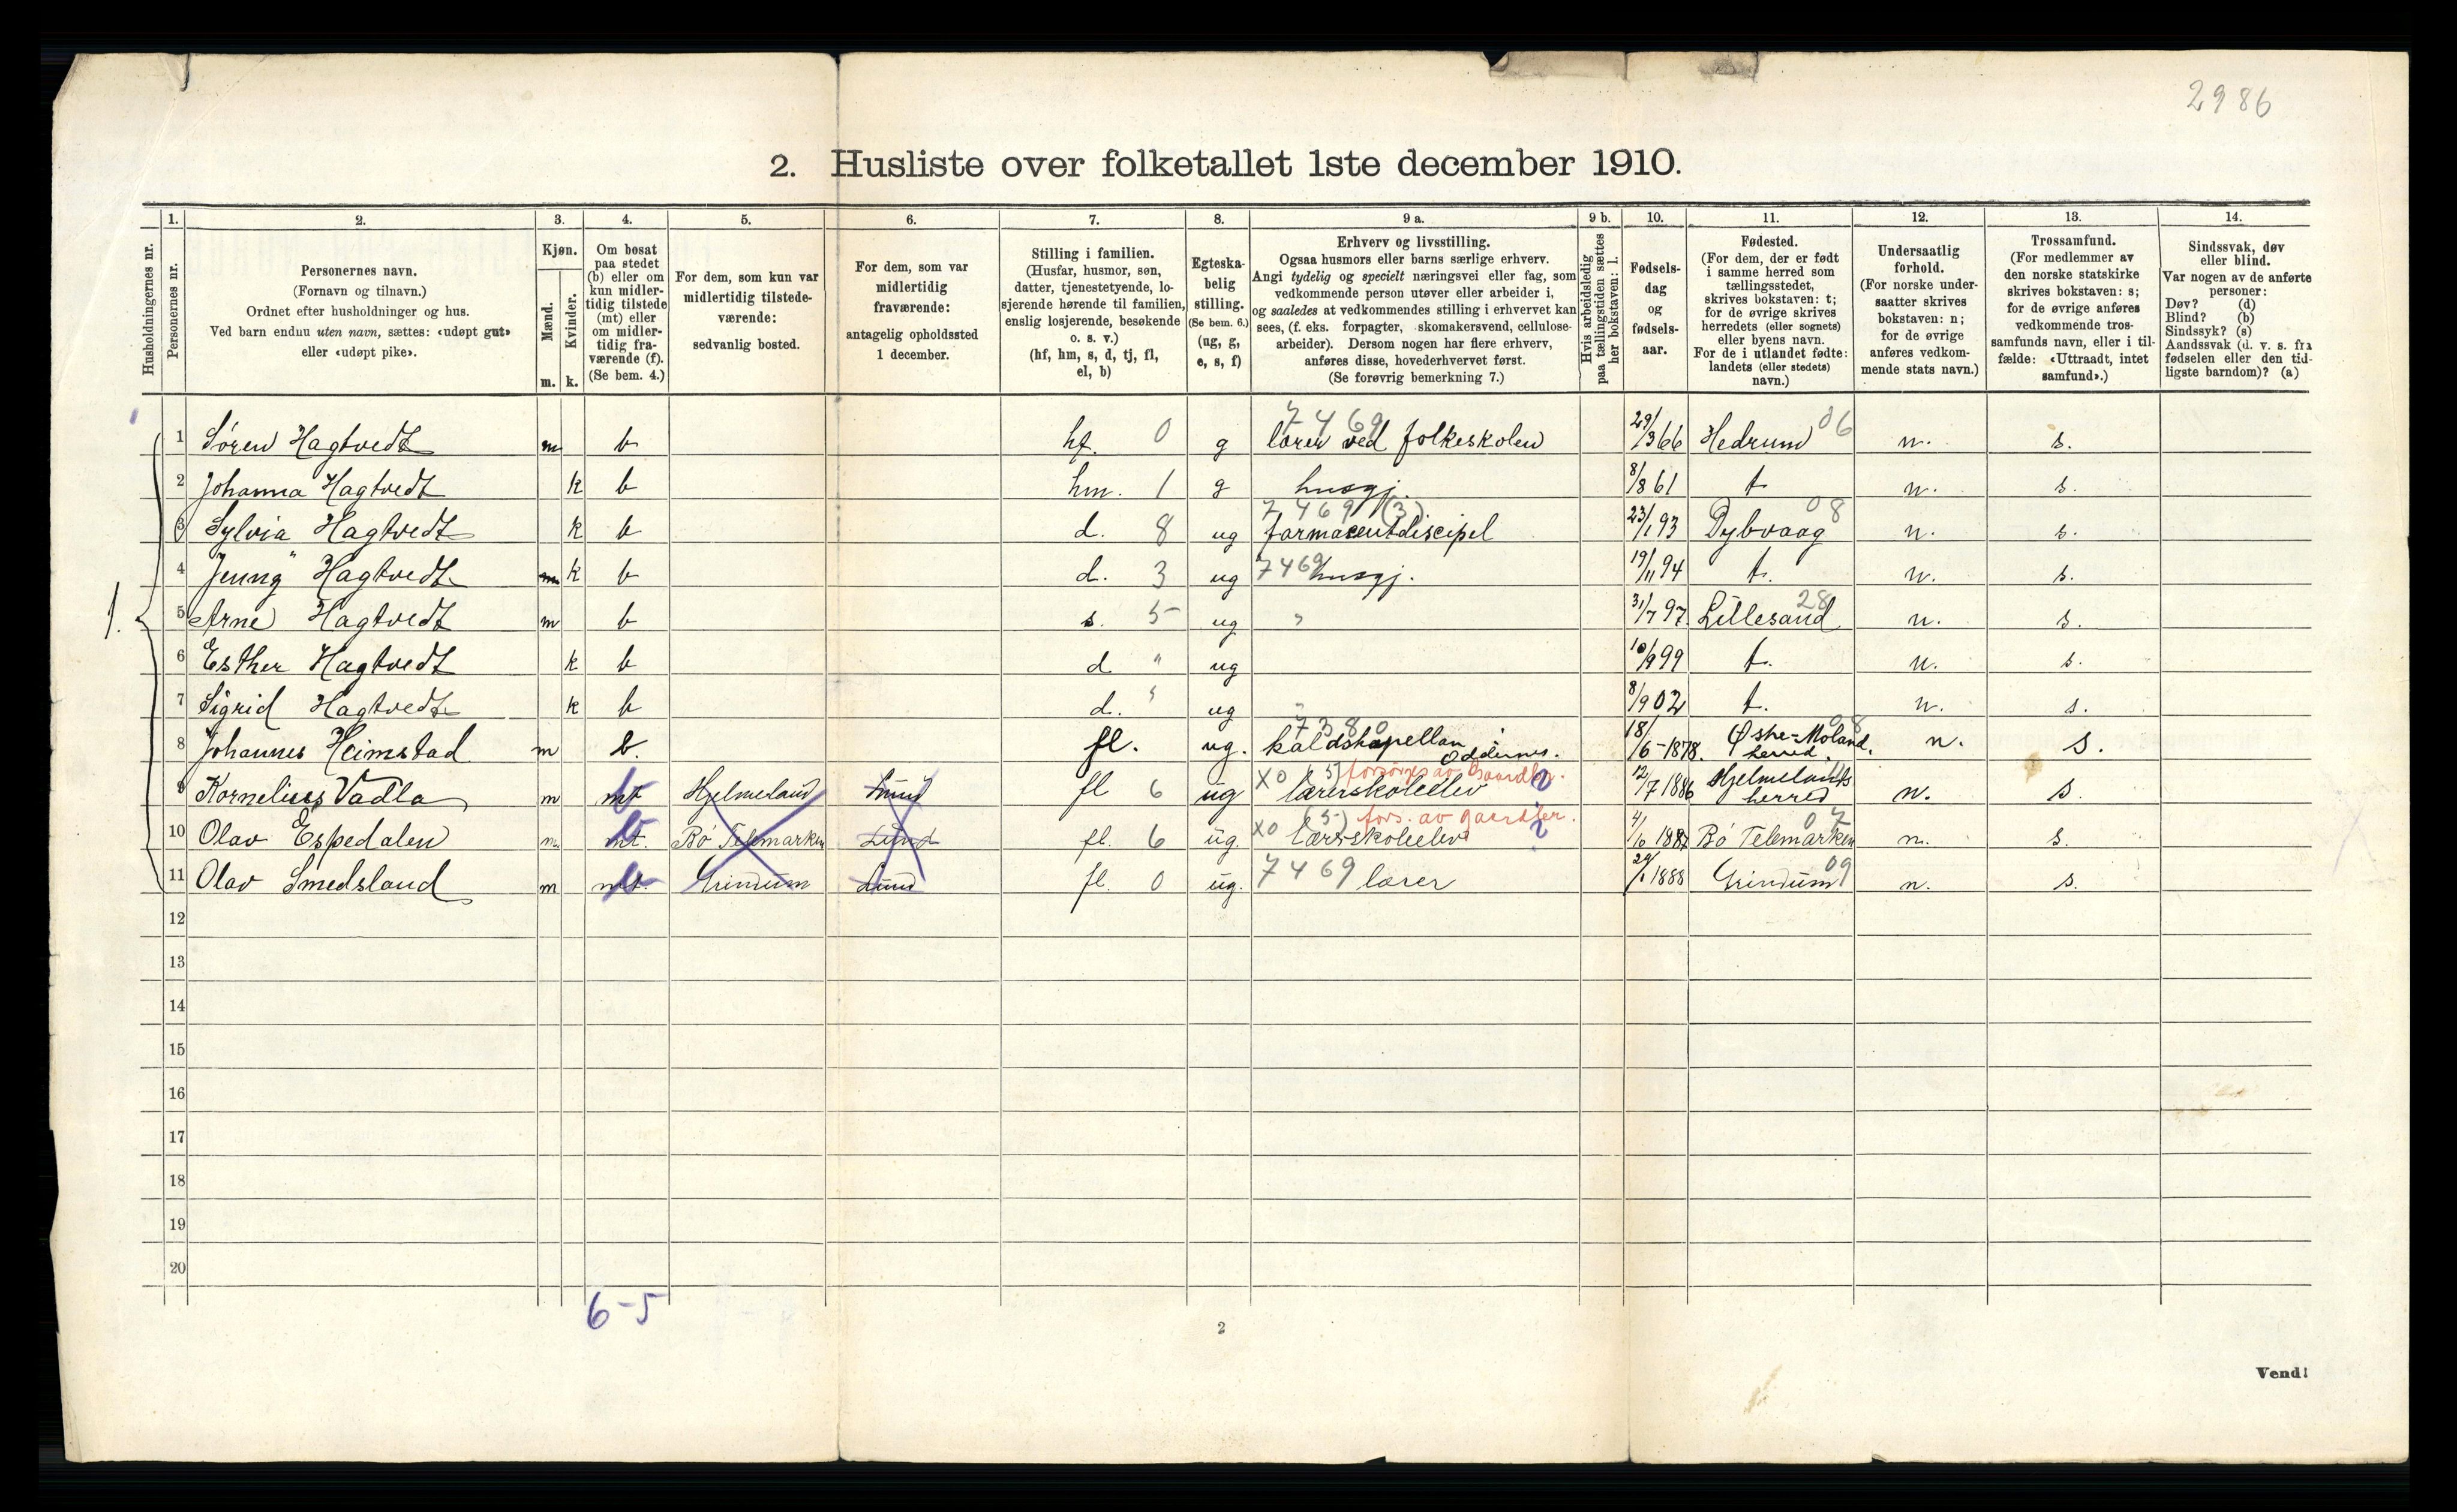 2986
2. Husliste over folketallet 1ste december 1910.
1. 2. 3. 4. 5. 6. 7. 8. 9 a. 9 b. 10. 11. 12. 13. 14.
Husholdningernes nr.
Personernes nr.
Personernes navn.
(Fornavn og tilnavn.)
Ordnet efter husholdninger og hus.
Ved barn endnu uten navn, sættes: «udøpt gut»
eller «udøpt pike».
Kjøn.
Mænd.
Kvinder.
m. k.
Om bosat
paa stedet
(b) eller om
kun midler-
tidig tilstede
(mt) eller
om midler-
tidig fra-
værende (f).
(Se bem. 4.)
For dem, som kun var
midlertidig tilstede-
værende:
sedvanlig bosted.
For dem, som var
midlertidig
fraværende:
antagelig opholdssted
1 december.
Stilling i familien.
(Husfar, husmor, søn,
datter, tjenestetyende, lo-
sjerende hørende til familien,
enslig losjerende, besøkende
o. s. v.)
(hf, hm, s, d, tj, fl,
el, b)
Egteska-
belig
stilling.
(Se bem. 6.)
(ug, g,
e, s, f)
Erhverv og livsstilling.
Ogsaa husmors eller barns særlige erhverv.
Angi tydelig og specielt næringsvei eller fag, som
vedkommende person utøver eller arbeider i,
og saaledes at vedkommendes stilling i erhvervet kan
sees, (f. eks. forpagter, skomakersvend, cellulose-
arbeider). Dersom nogen har flere erhverv,
anføres disse, hovederhvervet først.
(Se forøvrig bemerkning 7.)
Hvis arbeidsledig
paa tællingstiden sættes
her bokstaven: l.
Fødsels-
dag
og
fødsels-
aar.
Fødested.
(For dem, der er født
i samme herred som
tællingsstedet,
skrives bokstaven: t;
for de øvrige skrives
herredets (eller sognets)
eller byens navn.
For de i utlandet fødte:
landets (eller stedets)
navn.)
Undersaatlig
forhold.
(For norske under-
saatter skrives
bokstaven: n;
for de øvrige
anføres vedkom-
mende stats navn.)
Trossamfund.
(For medlemmer av
den norske statskirke
skrives bokstaven: s;
for de øvrige anføres
vedkommende tros-
samfunds navn, eller i til-
fælde: «Uttraadt, intet
samfund».)
Sindssvak, døv
eller blind.
Var nogen av de anførte
personer:
Døv? (d)
Blind? (b)
Sindssyk? (s)
Aandssvak (d. v. s. fra
fødselen eller den tid-
ligste barndom)? (a)
7469 06
1 Søren Hagtvedt m b hf. 0 g lærer ved folkeskolen 29/3 66 Hedrum n. s.
2 Johanna Hagtvedt k b hm. 1 g husgj. 8/8 61 t. n. s.
7469 (3) 08
3 Sylvia Hagtvedt k b d. 8 ug farmaceutdiscipel 23/1 93 Dybvaag n. s.
4 Jenny Hagtvedt k b d. 3 ug 7469 husgj. 19/11 94 t. n. s.
1.
5 Arne Hagtvedt m b s. 5 ug " 31/7 97 Lillesand 28 n. s.
6 Esther Hagtvedt k b d " ug 10/9 99 t. n. s.
7 Sigrid Hagtvedt k b d. " ug " 8/9 02 t. n. s.
7380 08
8 Johannes Heimstad m b. fl. ug. kaldskapellan Oddernes. 18/6-1878. Østre-Moland herred. n. s.
X0 (5) forsørges av Gaardbr.
9 Kornelius Vadla m mt b Hjelmeland Lund fl 6 ug lærerskoleelev 12/7 1886 Hjelmelands herred n. s.
X0 (5) fors. av gaardbr. 07
10 Olav Espedalen m. mt. b Bø Telemarken Lund fl. 6 ug. lærerskoleelev 4/10 1887 Bø Telemarken n. s.
11 Olav Smedsland m mt. b Grindum Lund fl. 0 ug. 7469 lærer 29/1 1888 Grindum 09 n. s.
12
13
14
15
16
17
18
19
20
6-5
2
Vend!